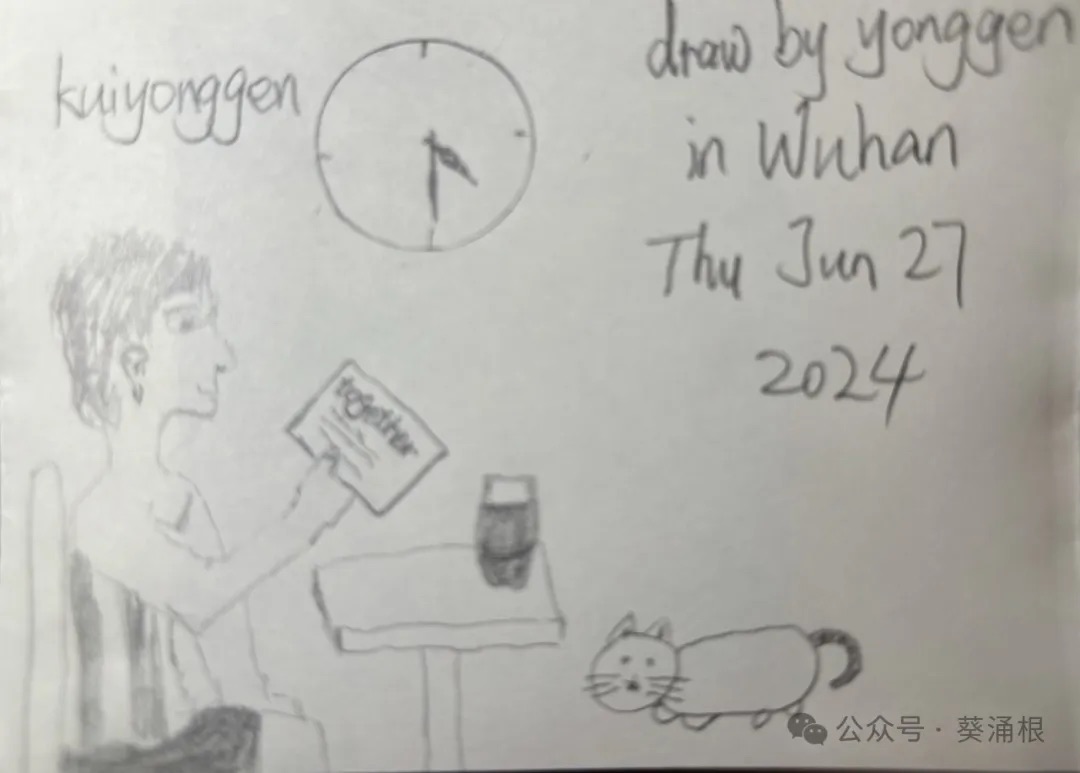 kuiyonggen
draw by yonggen
in Wuhan
Thu Jun 27
2024
together
公众号 · 葵涌根